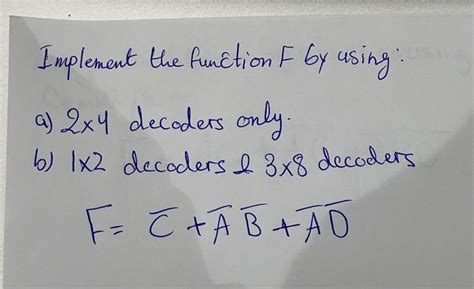 Implement the function F by using:
a) 2x4 decoders only.
b) 1x2 decoders & 3x8 decoders
F = C̅ + A̅ B̅ + A̅ D̅